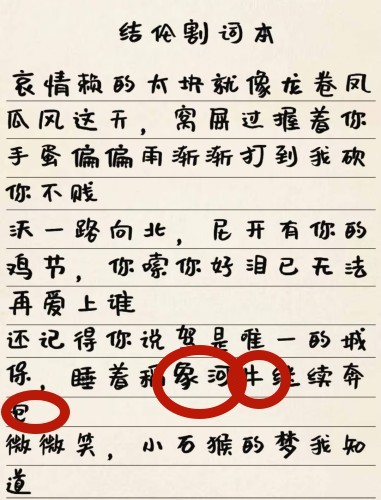 结伦割词本
哀情赖的太块就像龙卷凤
瓜风这天，窝屏过握着你
手蛋偏偏雨渐渐打到我砍
你不贱
沃一路向北，尼开有你的
鸡节，你嗦你好泪已无法
再爱上谁
还记得你说驾是唯一的城
保，睡着稻象河牛继续奔
包
微微笑，小石猴的梦我知
道